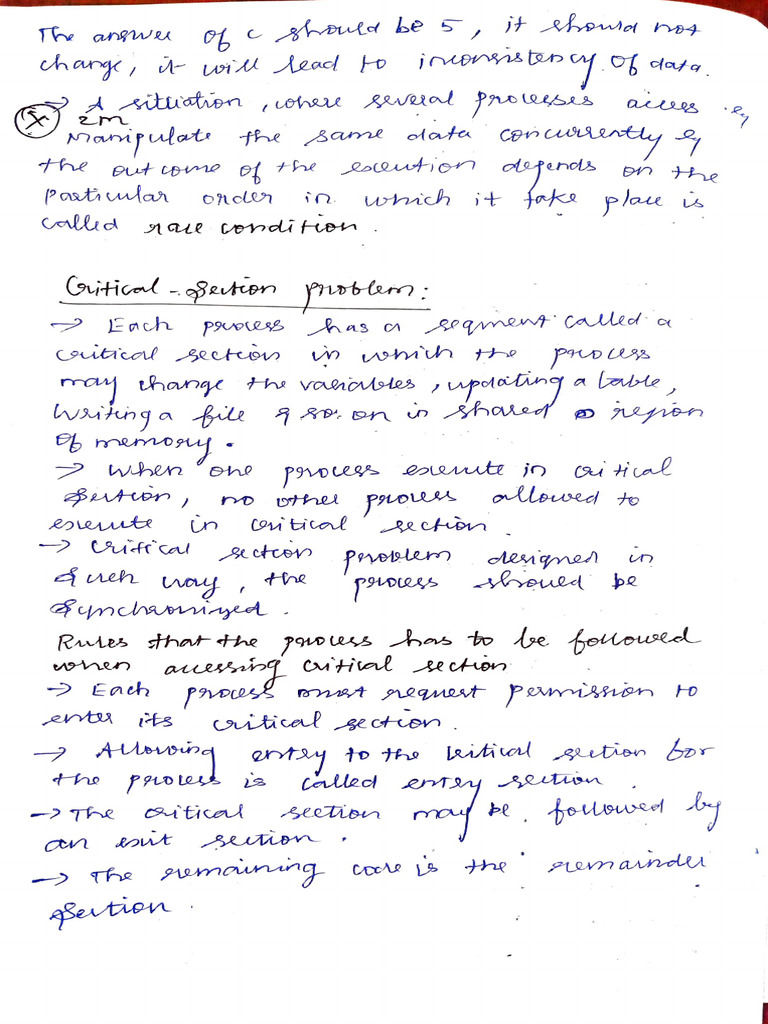 The answer of c should be 5, it should not
change, it will lead to inconsistency of data.
→ A sitiation, where several processes access &
2m
Manipulate the same data concurrently &
the outcome of the execution depends on the
particular order in which it take place is
called race condition.
Critical - Section problem:
→ Each process has a segment called a
critical section in which the process
may change the variables, updating a table,
writing a file & so on in shared region
of memory.
→ When one process execute in critical
section, no other process allowed to
execute in critical section.
→ Critical section problem designed in
such way, the process should be
synchronized.
Rules that the process has to be followed
when accessing critical section
→ Each process must request permission to
enter its critical section.
→ Allowing entry to the critical section for
the process is called entry section.
→ The critical section may be followed by
an exit section.
→ The remaining code is the remainder
section.